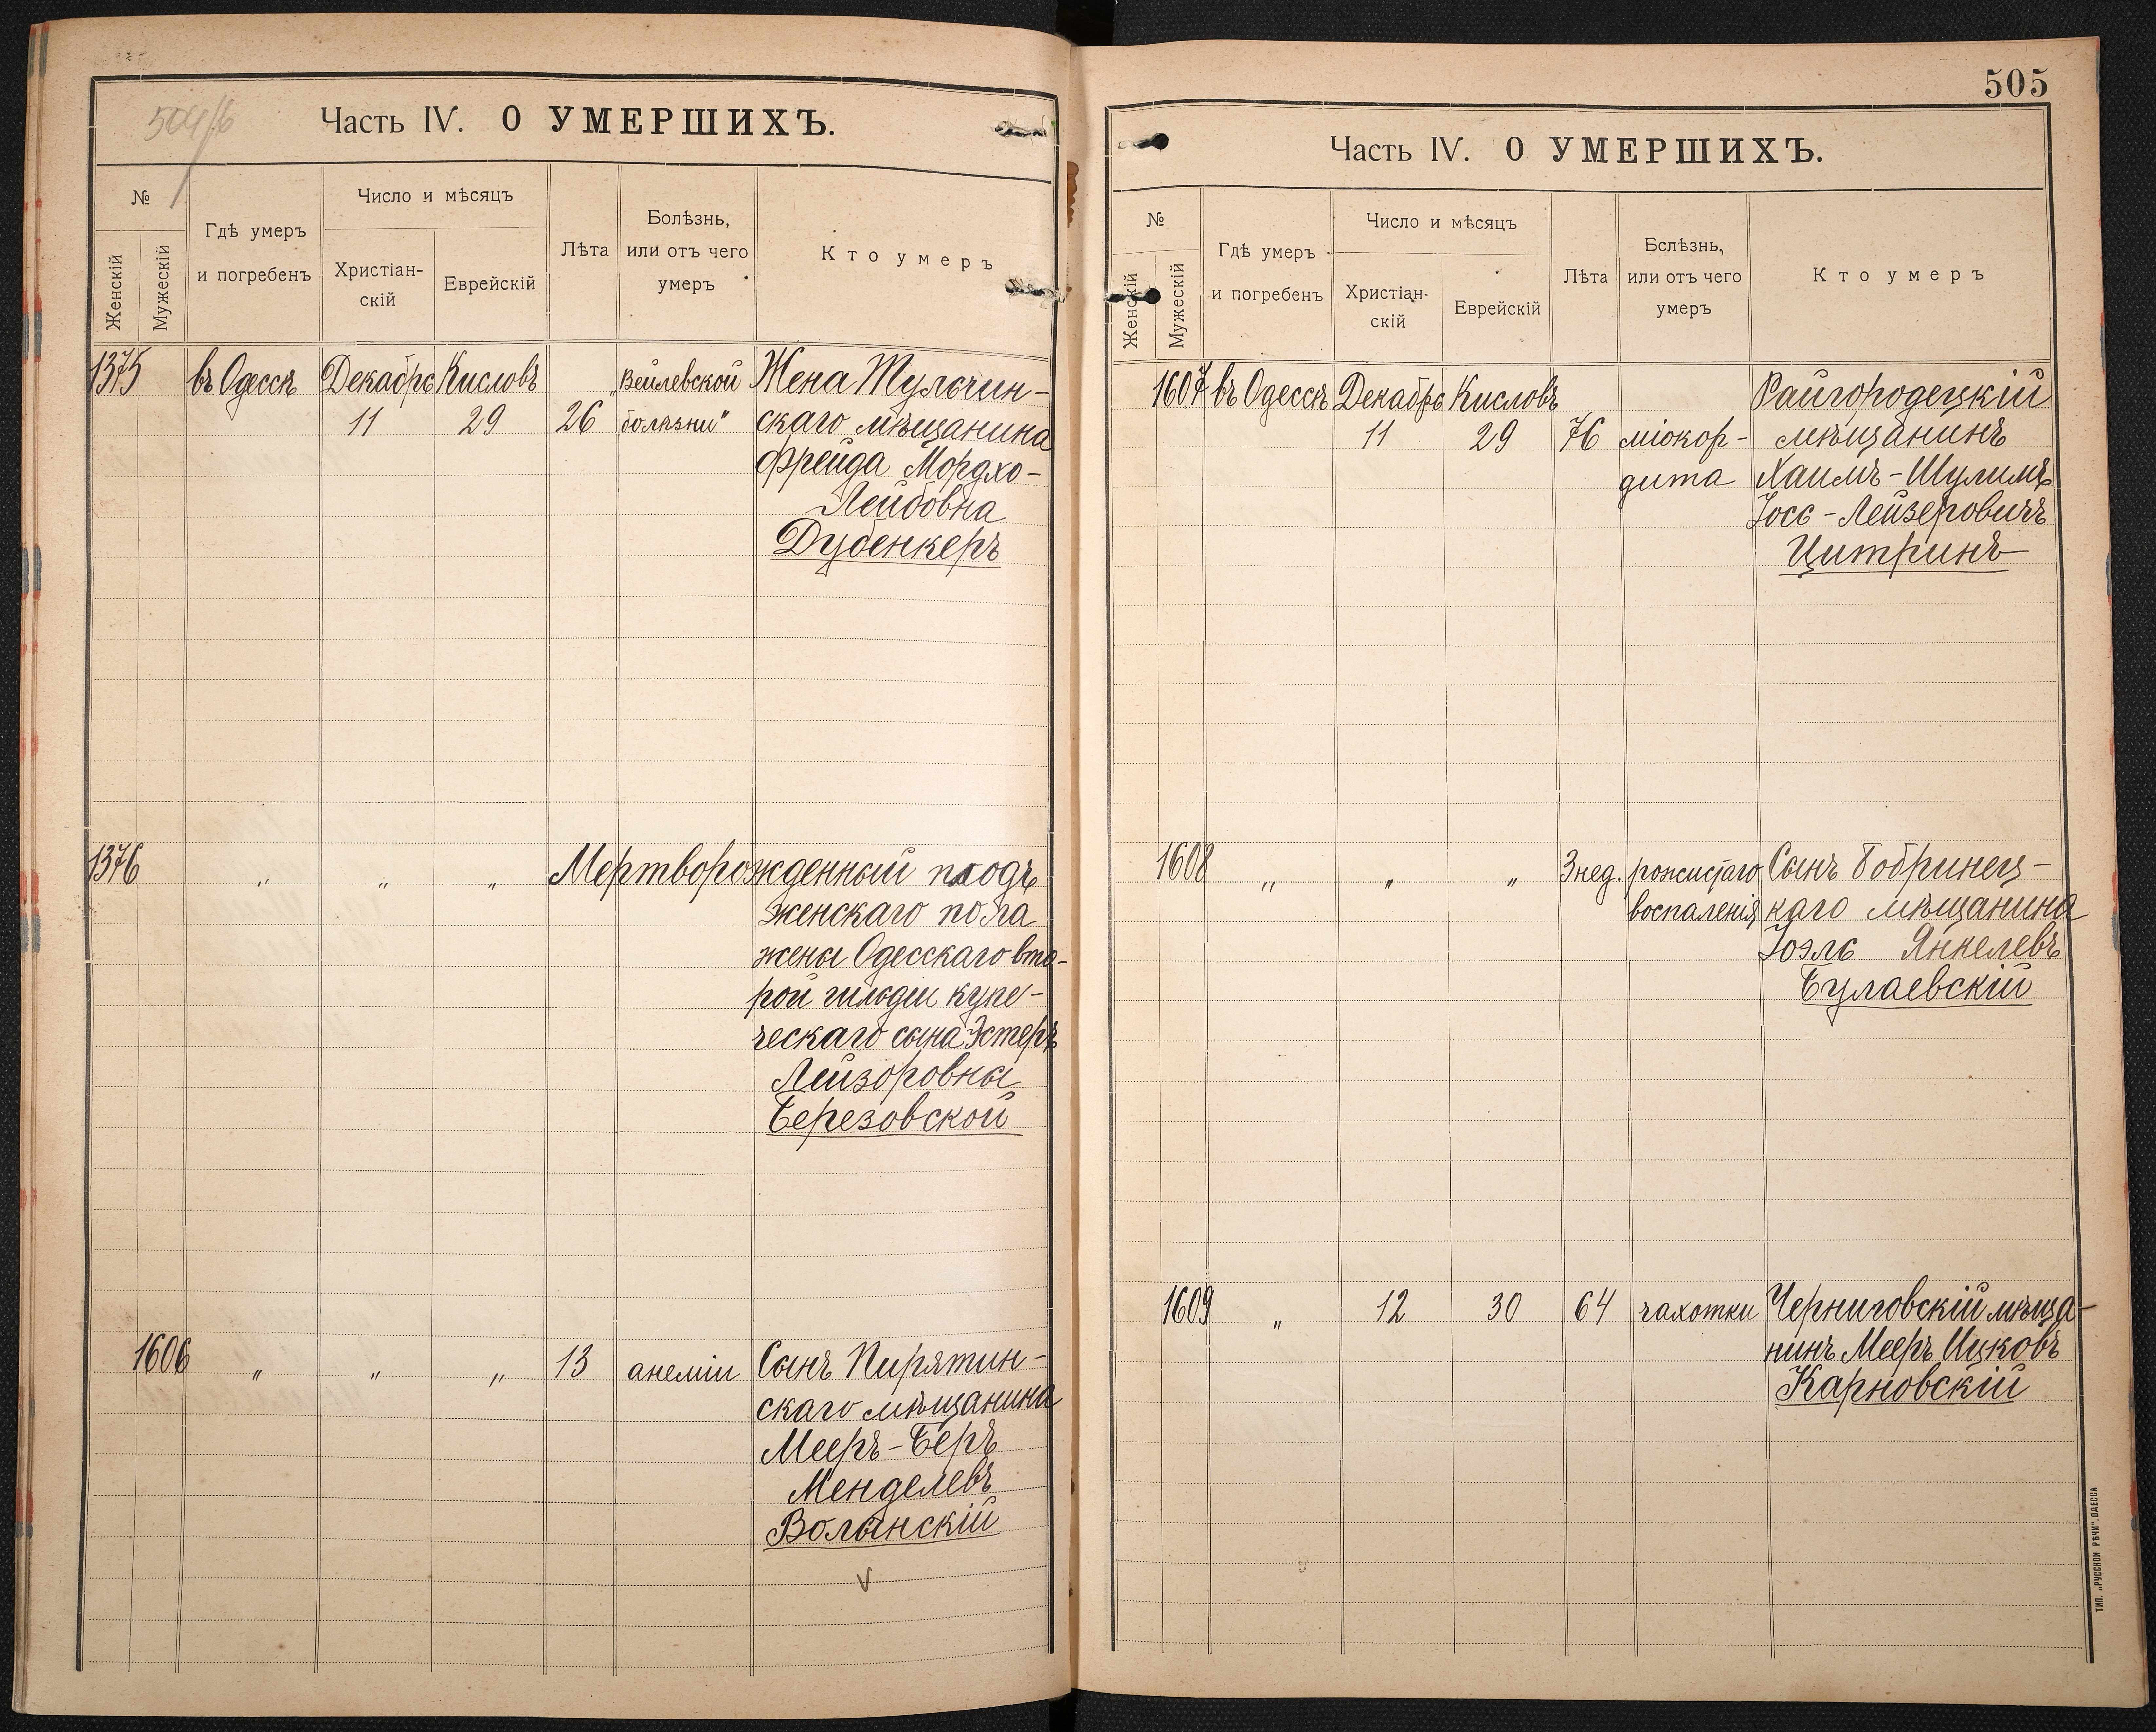 504/б
Часть IV. О УМЕРШИХЪ.
№
Женскій
Мужескій
Гдѣ умеръ
и погребенъ
Число и мѣсяцъ
Христіан-
скій
Еврейскій
Лѣта
Болѣзнь,
или отъ чего
умеръ
Кто умеръ
1375 въ Одессѣ Декабрь Кисловъ „Вейлевской Жена Тульчин-
11 29 26 болѣзни" скаго мѣщанина
Фрейда Мордхо-
Лейбовна
Дубенкеръ
1376 „ „ „ Мертворожденный плодъ
женскаго пола
жены Одесскаго вто-
рой гильдіи купе-
ческаго сына Эстеръ
Лейзоровны
Березовской
1606 „ „ „ 13 анеміи Сынъ Пирятин-
скаго мѣщанина
Мееръ-Беръ
Менделевъ
Волынскій
505
Часть IV. О УМЕРШИХЪ.
№
Женскій
Мужескій
Гдѣ умеръ
и погребенъ
Число и мѣсяцъ
Христіан-
скій
Еврейскій
Лѣта
Бслѣзнь,
или отъ чего
умеръ
Кто умеръ
1607 въ Одессѣ Декабрь Кисловъ Райгородецкій
11 29 76 міокор- мѣщанинъ
дита Хаимъ-Шулимъ
Іось-Лейзеровичъ
Цитринъ
1608 „ „ „ 3 нед. рожистаго Сынъ Бобринец-
воспаленія каго мѣщанина
Іоэль Янкелевъ
Булаевскій
1609 „ 12 30 64 чахотки Черниговскій мѣща-
нинъ Мееръ Ицковъ
Карновскій
ТИП. „РУССКОЙ РѢЧИ" ОДЕССА